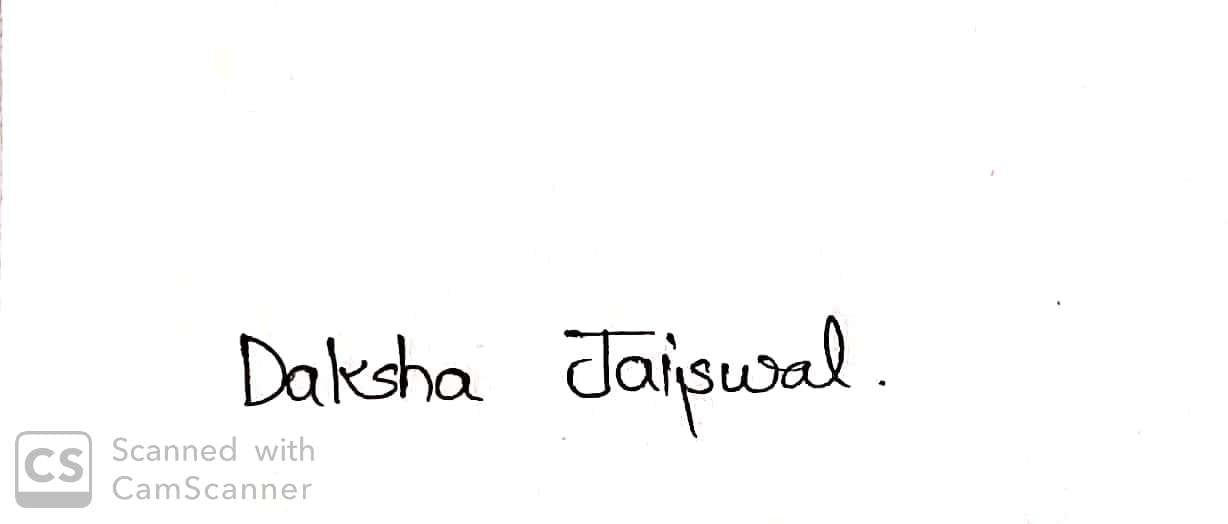 Daksha Jaiswal.
CS Scanned with
CamScanner